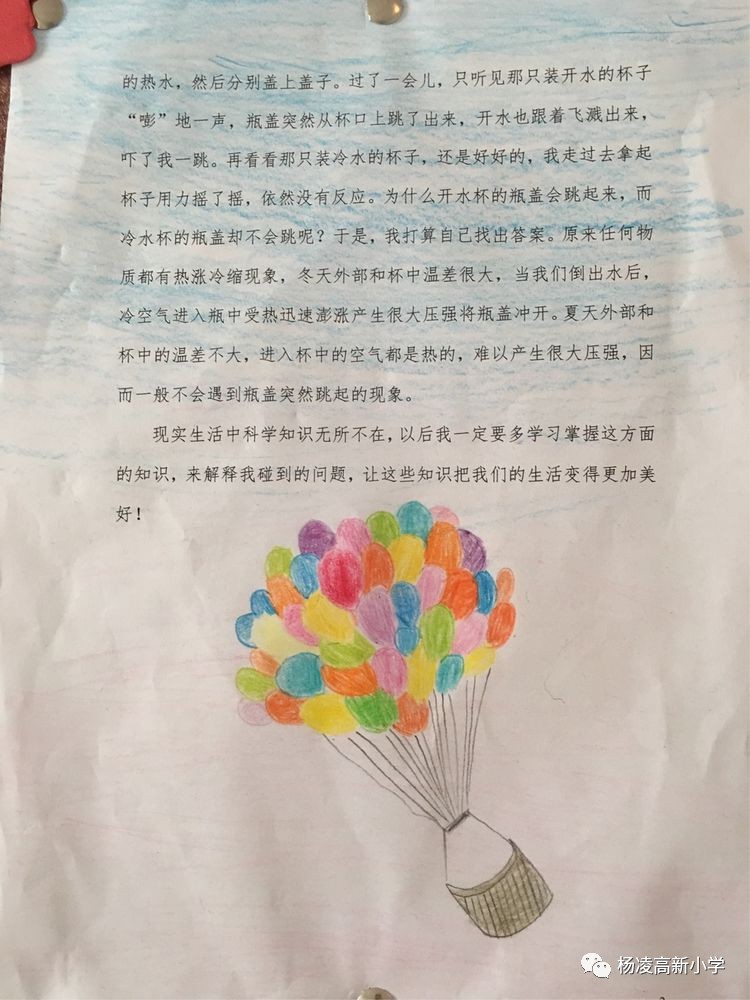 的热水，然后分别盖上盖子。过了一会儿，只听见那只装开水的杯子
“嘭”地一声，瓶盖突然从杯口上跳了出来，开水也跟着飞溅出来，
吓了我一跳。再看看那只装冷水的杯子，还是好好的，我走过去拿起
杯子用力摇了摇，依然没有反应。为什么开水杯的瓶盖会跳起来，而
冷水杯的瓶盖却不会跳呢？于是，我打算自己找出答案。原来任何物
质都有热涨冷缩现象，冬天外部和杯中温差很大，当我们倒出水后，
冷空气进入瓶中受热迅速澎涨产生很大压强将瓶盖冲开。夏天外部和
杯中的温差不大，进入杯中的空气都是热的，难以产生很大压强，因
而一般不会遇到瓶盖突然跳起的现象。
现实生活中科学知识无所不在，以后我一定要多学习掌握这方面
的知识，来解释我碰到的问题，让这些知识把我们的生活变得更加美
好！
杨凌高新小学